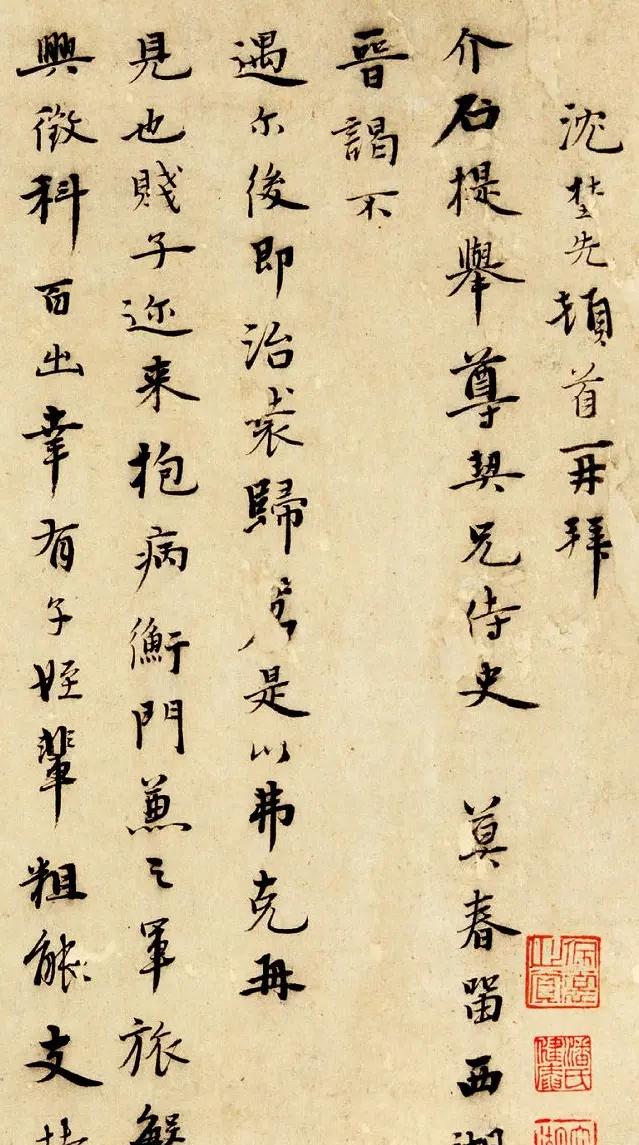 沈埜先頓首再拜
介石提舉尊契兄侍史 莫春留西湖
晉謁不
遇尔後即治裝歸是以弗克再
見也賤子迩來抱病衡門兼之軍旅繁
興徵科百出幸有子姪輩粗能支